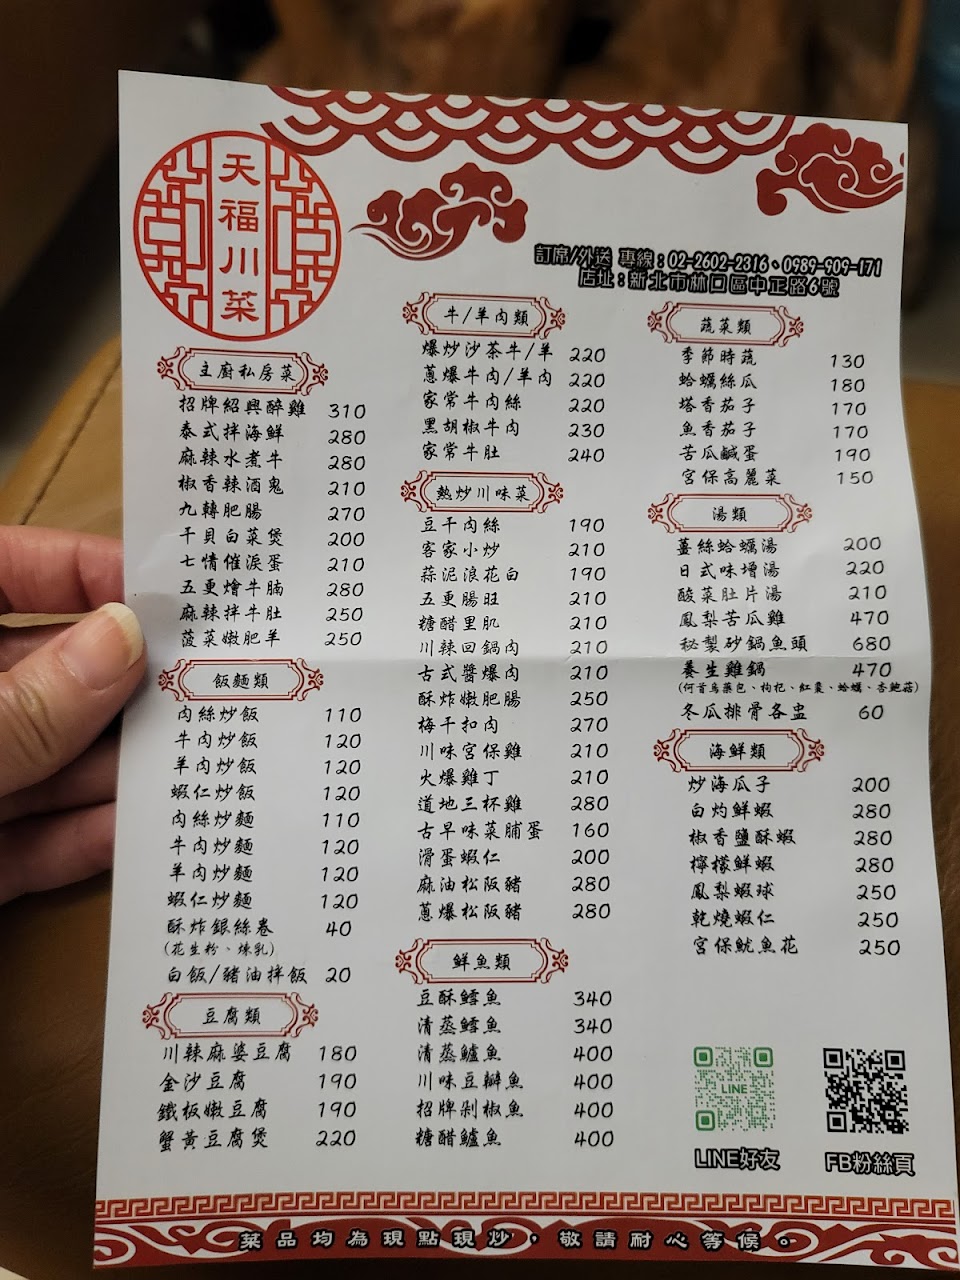 天福川菜
訂席/外送 專線：02-2602-2316、0989-909-171
店址：新北市林口區中正路6號
主廚私房菜
招牌紹興醉雞 310
泰式拌海鮮 280
麻辣水煮牛 280
椒香辣酒鬼 210
九轉肥腸 270
干貝白菜煲 200
七情催淚蛋 210
五更燴牛腩 280
麻辣拌牛肚 250
菠菜嫩肥羊 250
飯麵類
肉絲炒飯 110
牛肉炒飯 120
羊肉炒飯 120
蝦仁炒飯 120
肉絲炒麵 110
牛肉炒麵 120
羊肉炒麵 120
蝦仁炒麵 120
酥炸銀絲卷 40
(花生粉、煉乳)
白飯/豬油拌飯 20
豆腐類
川辣麻婆豆腐 180
金沙豆腐 190
鐵板嫩豆腐 190
蟹黃豆腐煲 220
牛/羊肉類
爆炒沙茶牛/羊 220
蔥爆牛肉/羊肉 220
家常牛肉絲 220
黑胡椒牛肉 230
家常牛肚 240
熱炒川味菜
豆干肉絲 190
客家小炒 210
蒜泥浪花白 190
五更腸旺 210
糖醋里肌 210
川辣回鍋肉 210
古式醬爆肉 210
酥炸嫩肥腸 250
梅干扣肉 270
川味宮保雞 210
火爆雞丁 210
道地三杯雞 280
古早味菜脯蛋 160
滑蛋蝦仁 200
麻油松阪豬 280
蔥爆松阪豬 280
鮮魚類
豆酥鱈魚 340
清蒸鱈魚 340
清蒸鱸魚 400
川味豆瓣魚 400
招牌剁椒魚 400
糖醋鱸魚 400
蔬菜類
季節時蔬 130
蛤蠣絲瓜 180
塔香茄子 170
魚香茄子 170
苦瓜鹹蛋 190
宮保高麗菜 150
湯類
薑絲蛤蠣湯 200
日式味增湯 220
酸菜肚片湯 210
鳳梨苦瓜雞 470
秘製砂鍋魚頭 680
養生雞鍋 470
(何首烏藥包、枸杞、紅棗、蛤蠣、杏鮑菇)
冬瓜排骨各盅 60
海鮮類
炒海瓜子 200
白灼鮮蝦 280
椒香鹽酥蝦 280
檸檬鮮蝦 280
鳳梨蝦球 250
乾燒蝦仁 250
宮保魷魚花 250
LINE
LINE好友
FB粉絲頁
菜品均為現點現炒，敬請耐心等候。